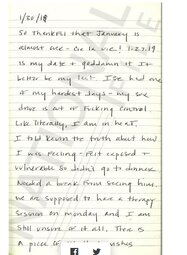 1/30/19
So thankful that January is
almost over - Ce la vie! 1.23.19
is my date & goddamn it it
better be my last. I've had one
of my hardest days - my sex
drive is out of fucking control
Like literally, I am in heat.
I told Kevin the truth about how
I was feeling - felt exposed &
vulnerable so didn't go to dinner.
Needed a break from seeing him.
We are supposed to have a therapy
session on Monday and I am
still unsure of it all. There is
a piece of wishes